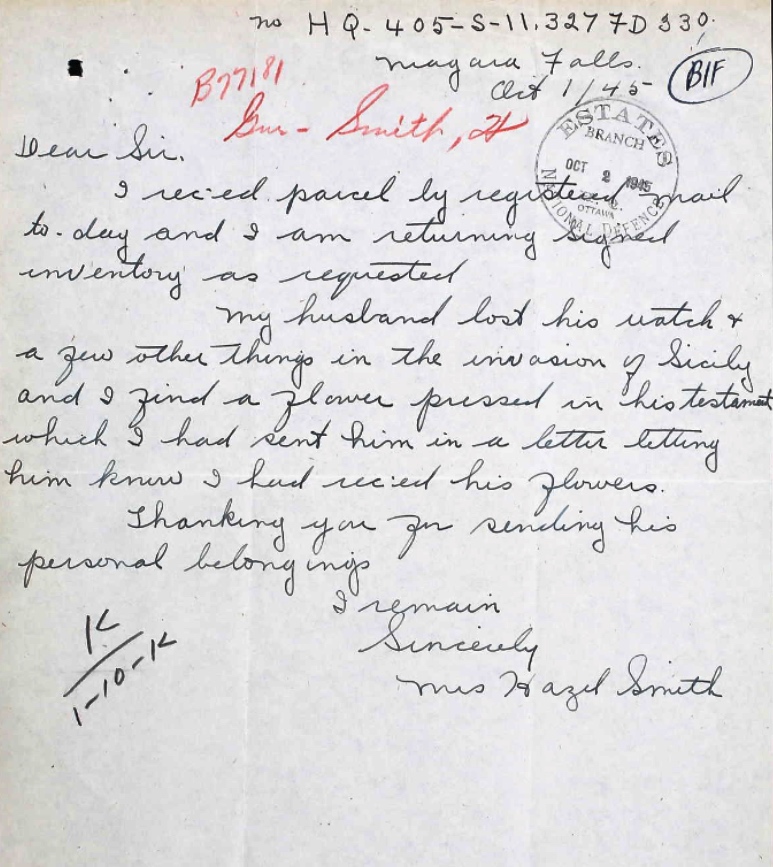 no HQ-405-S-11,327 FD 330.
Niagara Falls.
Oct 1/45
B1F
B77181
Gnr - Smith, H
ESTATES
BRANCH
OCT 2 1945
OTTAWA
NATIONAL DEFENCE
Dear Sir.
I rec-ed parcel by registered mail
to-day and I am returning signed
inventory as requested
My husband lost his watch +
a few other things in the invasion of Sicily
and I find a flower pressed in his testament
which I had sent him in a letter letting
him know I had rec:ed his flowers.
Thanking you for sending his
personal belongings
I remain
Sincerely
Mrs Hazel Smith
1-10-